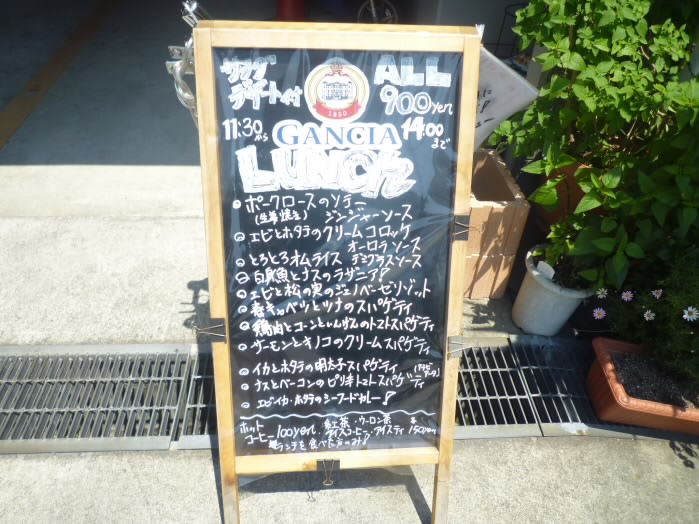 サラダ
デザート付
ALL
900yen
1850
GANCIA
11:30から
14:00まで
LUNCH
ポークロースのソテー
(生姜焼き) ジンジャーソース
エビとホタテのクリームコロッケ
オーロラソース
とろとろオムライス デミグラスソース
白身魚とナスのラザニア!
エビと松の実のジェノベーゼリゾット
春キャベツとツナのスパゲティ
鶏肉とコーンといんげんのトマトスパゲティ
サーモンとキノコのクリームスパゲティ
イカとホタテの明太子スパゲティ
ナスとベーコンのピリ辛トマトスパゲティ
エビ・イカ・ホタテのシーフドカレー!
ホット
コーヒー 100yen. 紅茶・ウーロン茶
アイスコーヒー・アイスティ 150yen
ランチを食べた方のみ!